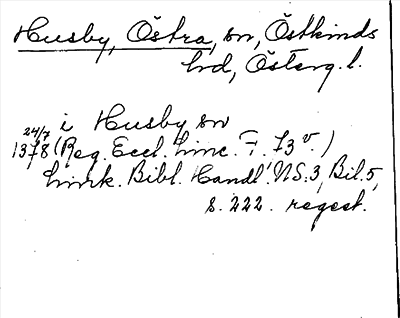 Husby, Östra, sn, Östkinds
hd, Österg. l.
i Husby sn
24/7 1378 (Reg. Eccl. Linc. F. 73 v.)
Link. Bibl. Handl. NS. 3, Bil. 5,
s. 222. regest.